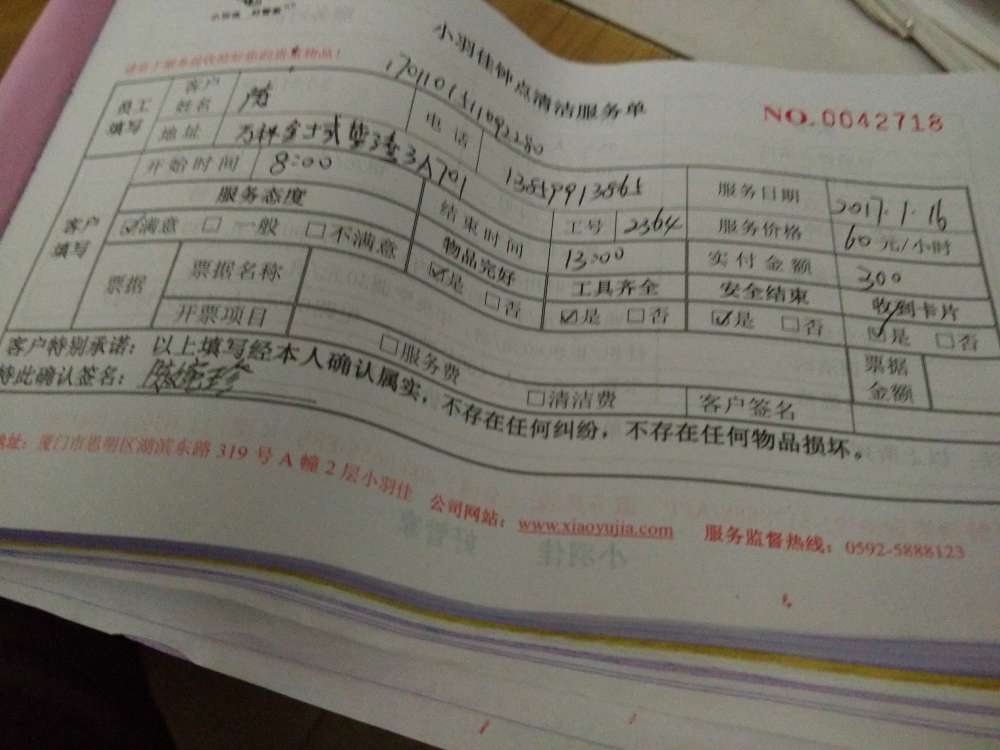 小羽佳 好管家
小羽佳钟点清洁服务单
NO.0042718
员工填写
客户姓名
电话 13859913865
服务日期 2017.1.16
地址
3A701
工号 2364
服务价格 60元/小时
客户填写
开始时间 8:00
结束时间 13:00
实付金额 300
服务态度 物品完好 工具齐全 安全结束 收到卡片
☑满意 □一般 □不满意 ☑是 □否 ☑是 □否 ☑是 □否 ☑是 □否
票据
票据名称
票据金额
开票项目 □服务费 □清洁费 客户签名
客户特别承诺:以上填写经本人确认属实,不存在任何纠纷,不存在任何物品损坏。
特此确认签名:
地址:厦门市思明区湖滨东路319号A幢2层小羽佳 公司网站:www.xiaoyujia.com 服务监督热线:0592-5888123